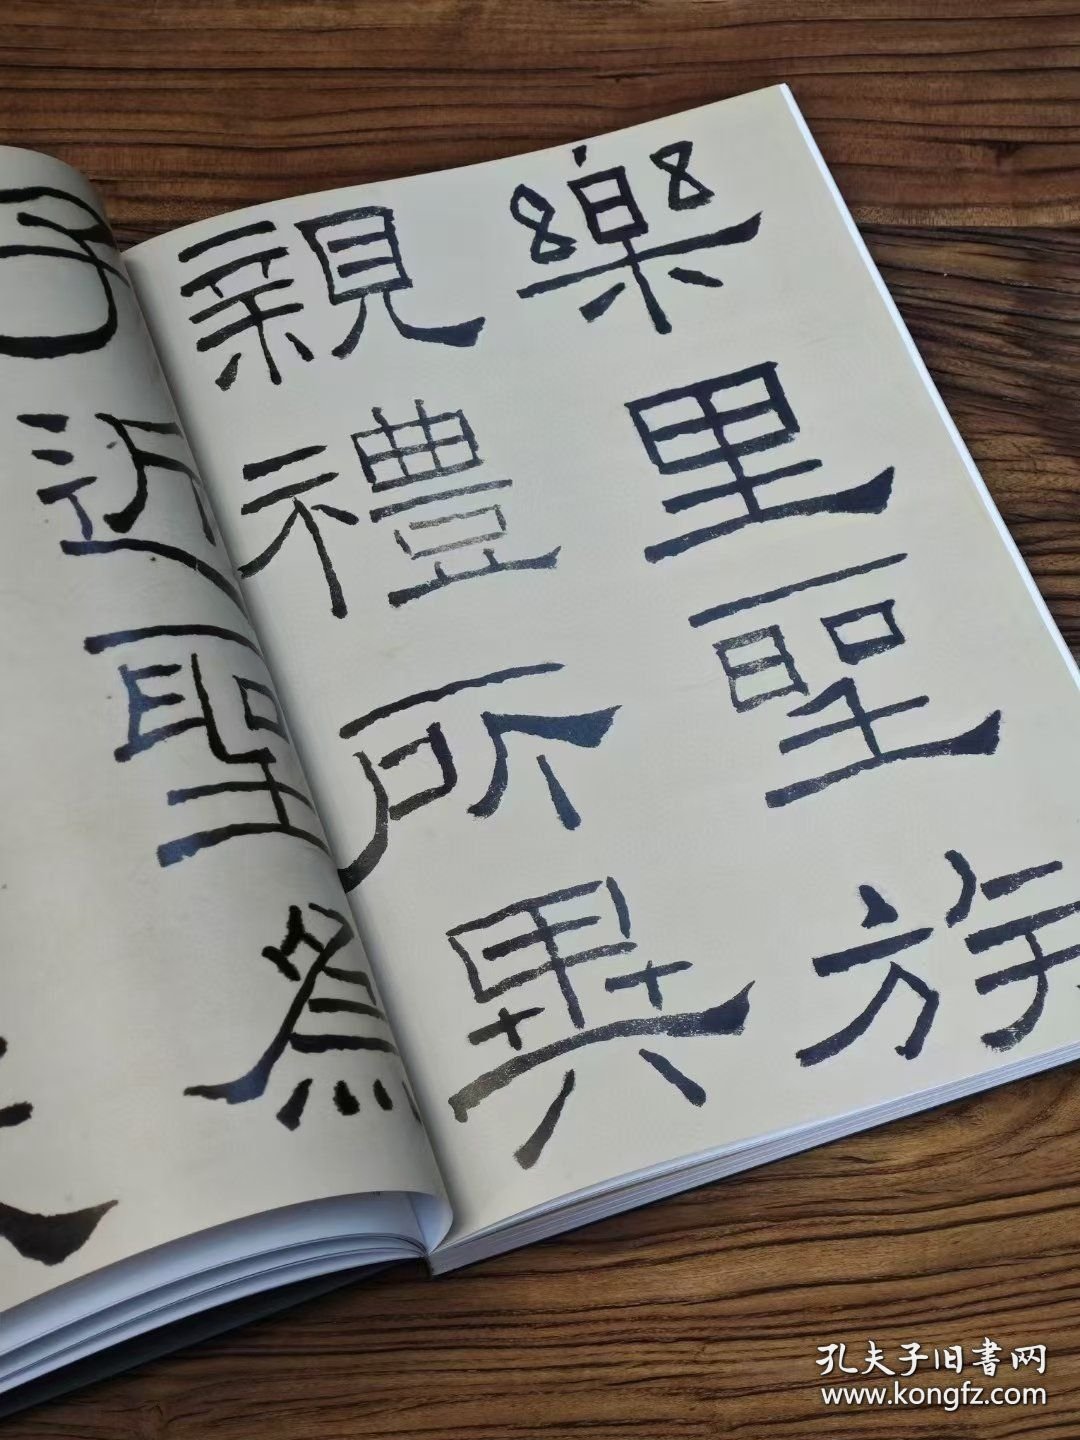 樂里聖族
親禮所異
子近聖為
孔夫子旧書网
www.kongfz.com